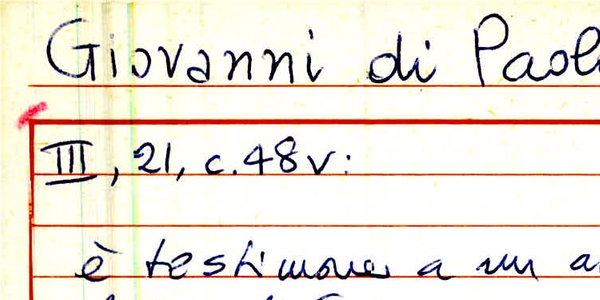 Giovanni di Paol
III, 21, c. 48v:
è testimone a un a